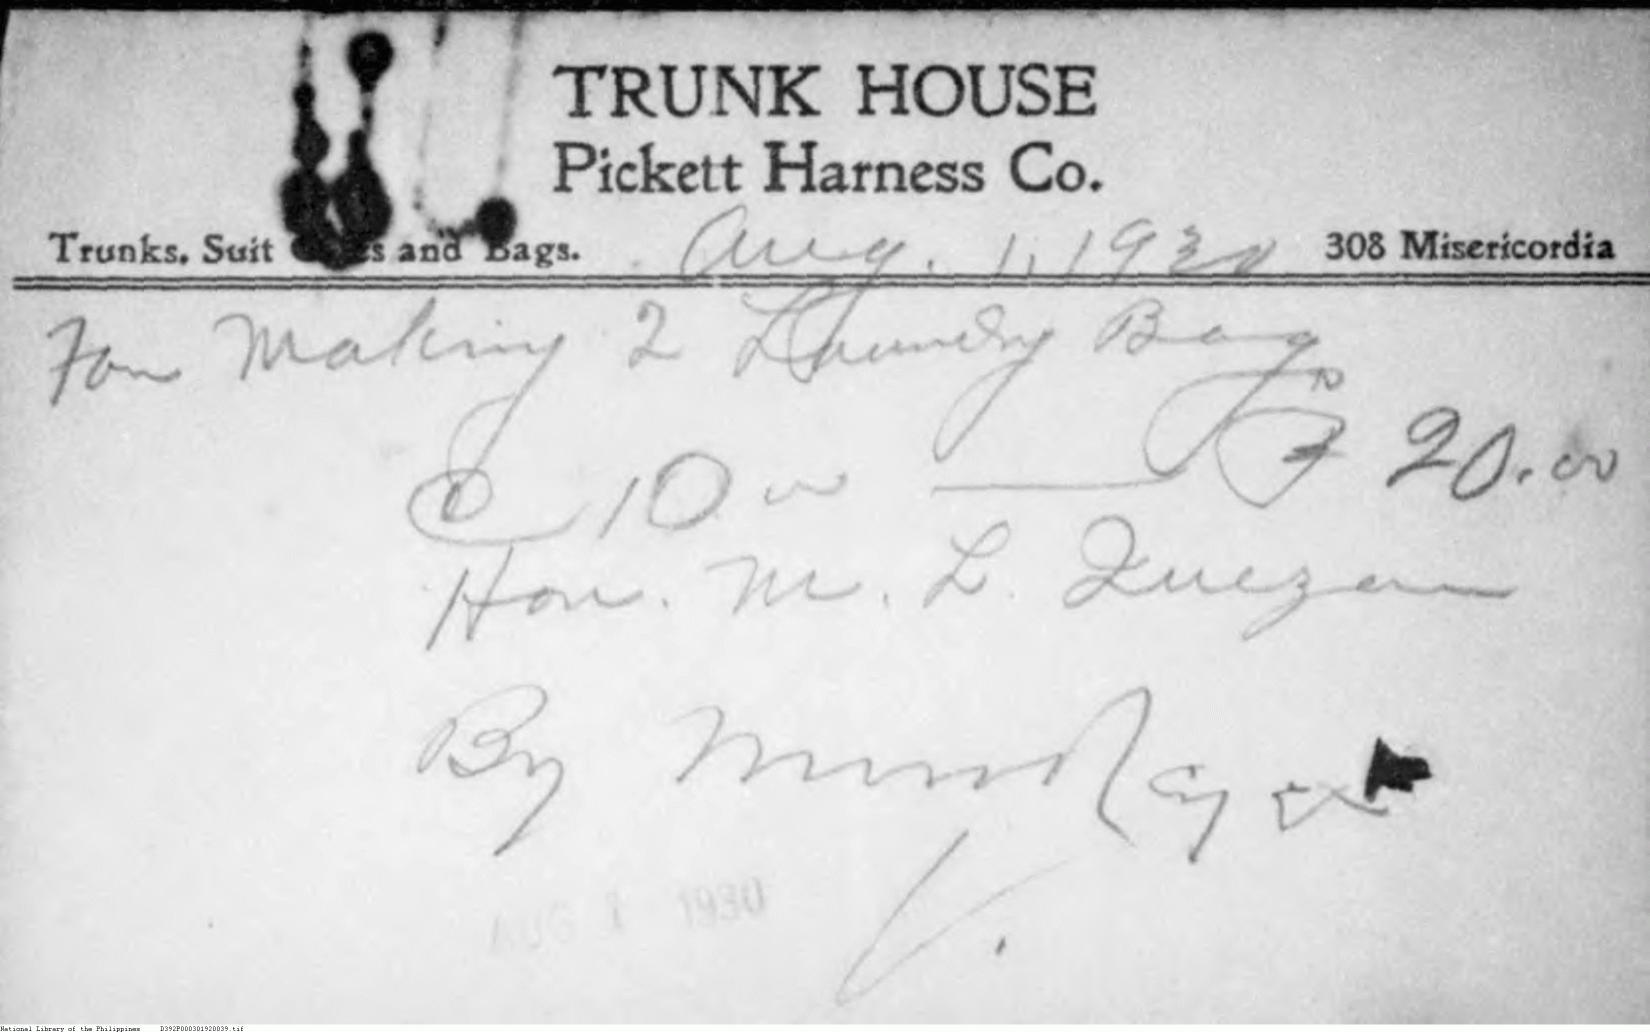 TRUNK HOUSE
Pickett Harness Co.
Trunks, Suit and Bags. Aug. 1, 1930 308 Misericordia
For Making 2 Laundry Bag
@ 10.00 — ₱ 20.00
Hon. M. L. Quezon
By
AUG 1 1930
National Library of the Philippines D392P000301920039.tif